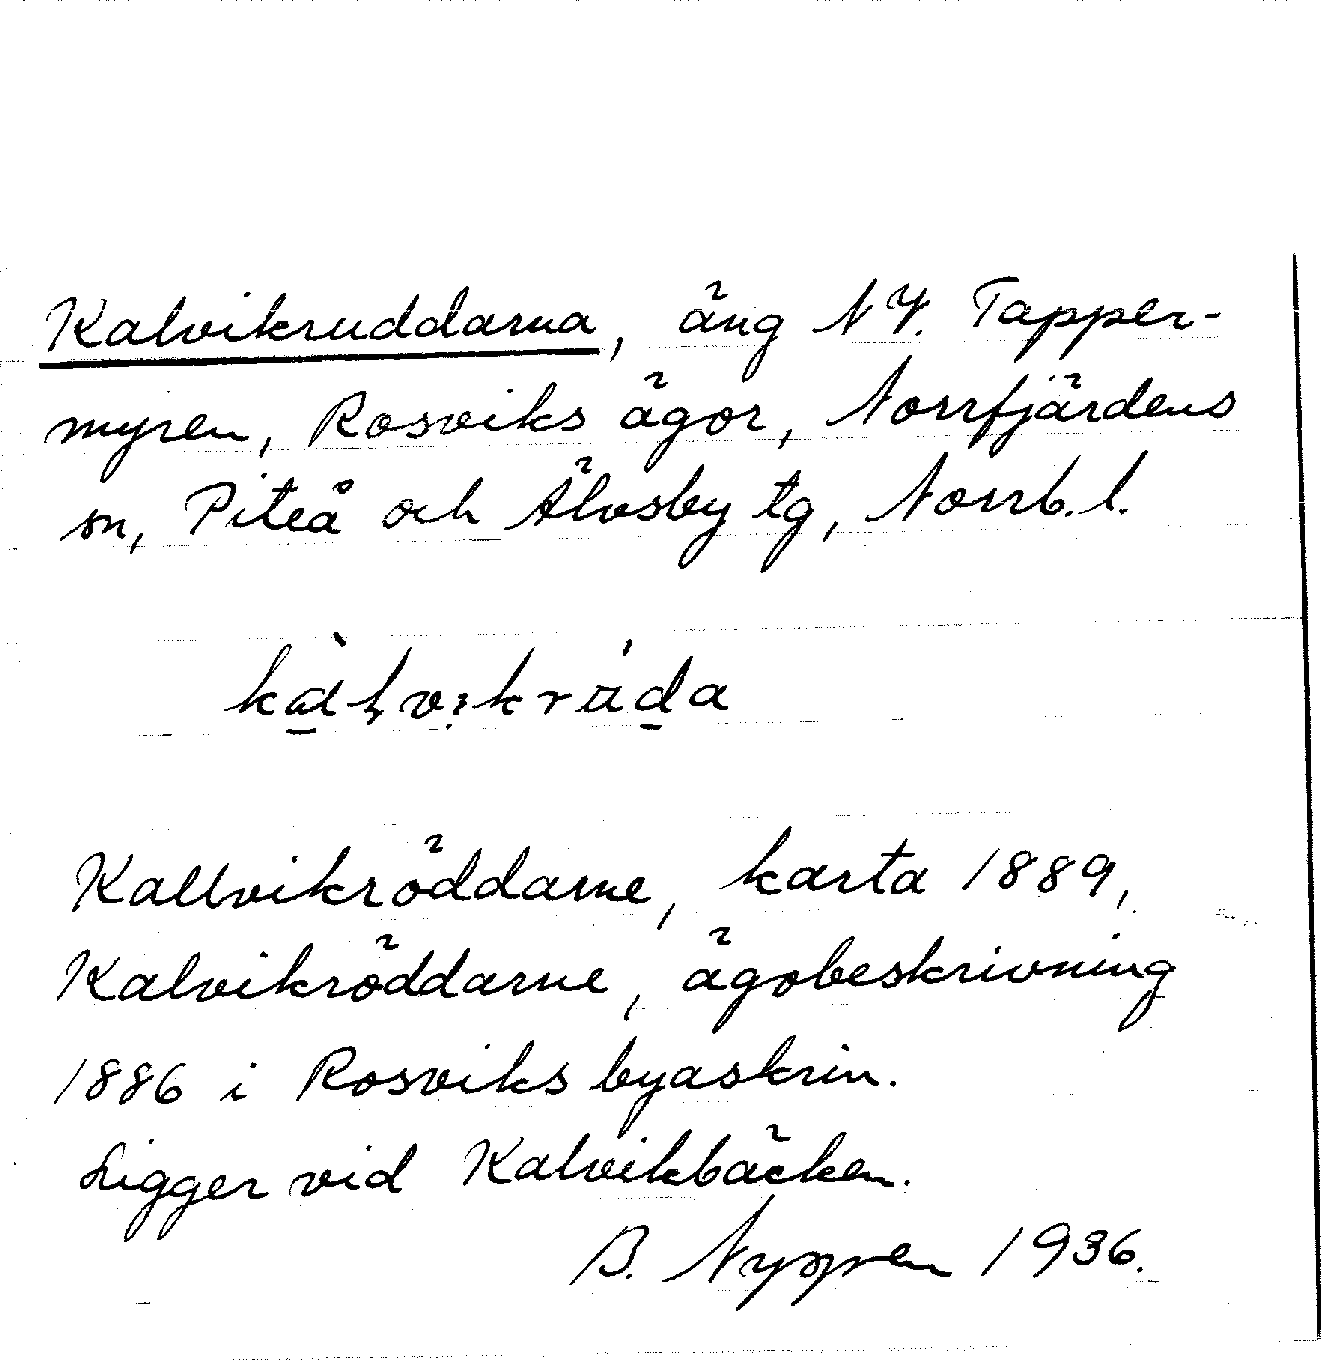 Kalvikruddarna, äng NV. Tapper-
myren, Rosviks ägor, Norrfjärdens
sn, Piteå och Älvsby tg, Norrb. l.
Kallvikröddarne, karta 1889,
Kalvikröddarne, ägobeskrivning
1886 i Rosviks byaskrin.
Ligger vid Kalvikbäcken.
B. 1936.